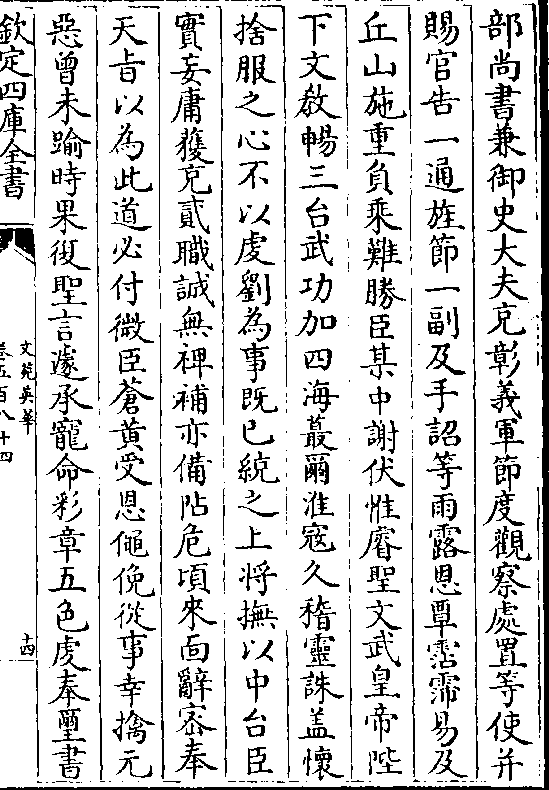 部尚書兼御史大夫充彰義軍節度觀察處置等使并
賜官告一通旌節一副及手詔等雨露恩覃霑霈易及
丘山施重負乘難勝臣某中謝伏惟睿聖文武皇帝陛
下文敎暢三台武功加四海蕞爾淮寇久稽靈誅盖懷
捨服之心不以虔劉為事既已統之上將撫以中台臣
實妄庸獲充貳職誠無裨補亦備阽危頃來面辭宻奉
天㫖以為此道必付微臣蒼黃受恩僶俛從事幸擒元
惡曾未踰時果復聖言遽承寵命彩章五色虔奉璽書
欽定四庫全書
文苑英華
卷五百八十四
十四